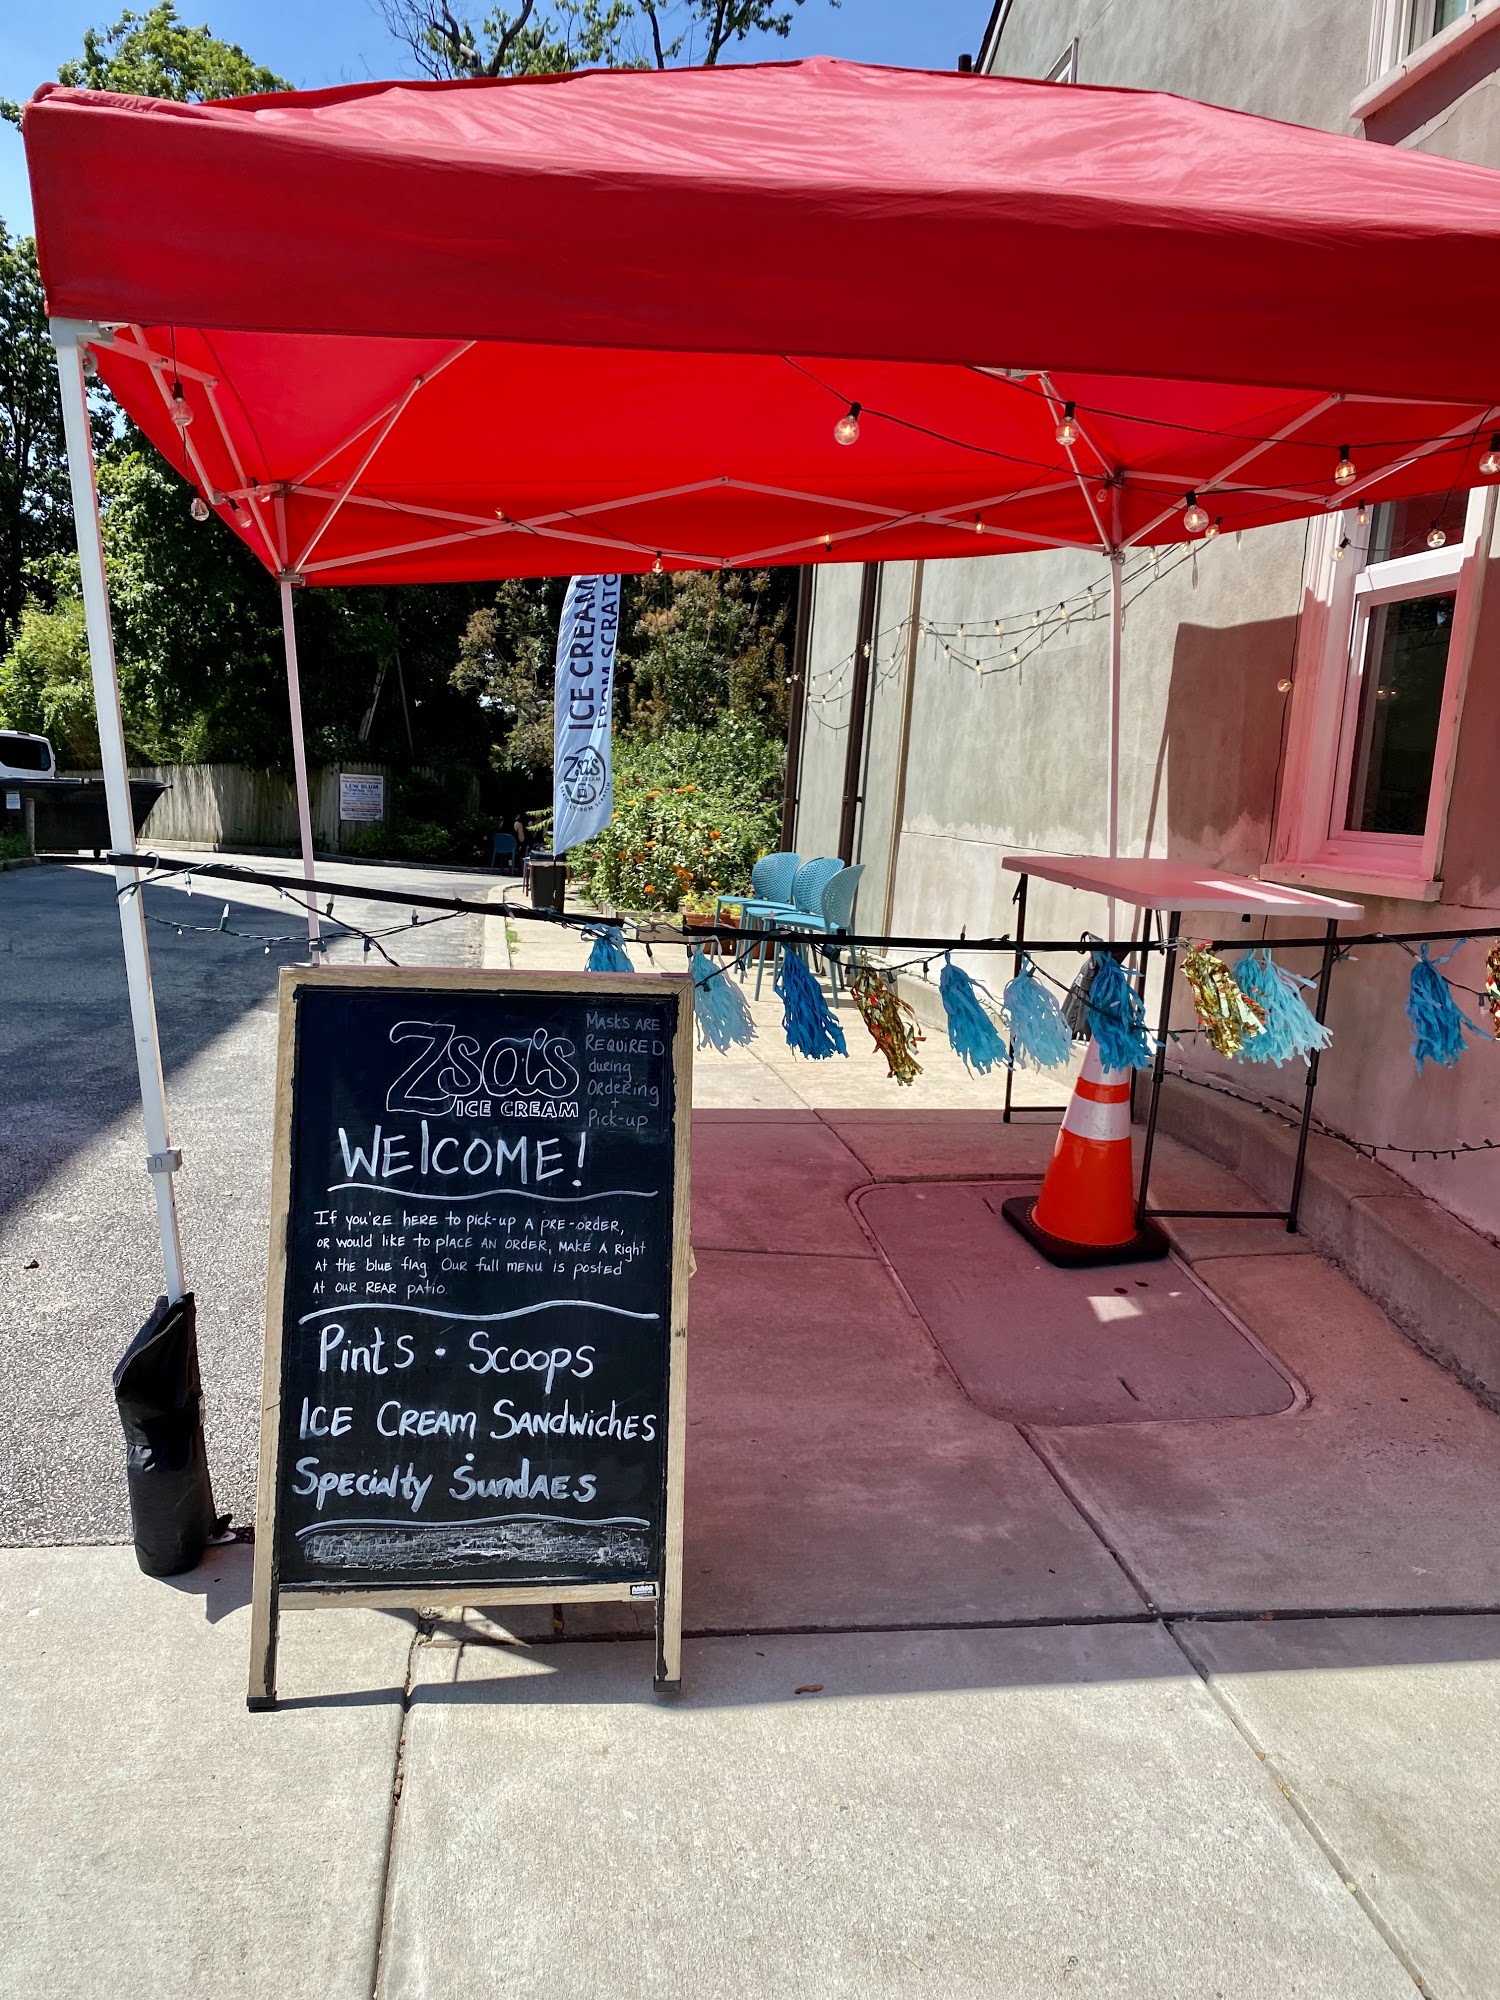 ICE CREAM
FROM SCRATC
Zsa's
ICE CREAM
LEW BLUM
Zsa's
ICE CREAM
MASKS ARE
REQUIRED
during
Ordering
+
Pick-up
WELCOME!
If you're here to pick-up a pre-order,
or would like to place an order, make a right
at the blue flag. Our full menu is posted
at our rear patio.
Pints • Scoops
Ice Cream Sandwiches
•
Specialty Sundaes